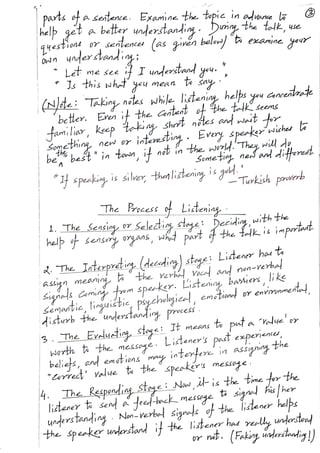 parts of a sentence. Examine the topic in advance to
③
help get a better understanding. During the talk, use
questions or sentences (as given below) to examine your
own understanding:
" Let me see if I understand you. "
" Is this what you mean to say. "
(N)ote: Taking notes while listening helps you concentrate
better. Even if the content of the talk seems
familiar, keep taking short notes and wait for
something new or interesting. Every speaker wishes to
be the best" in town, if not in the world. They will do
someting new and different
"If speaking is silver, then listening is gold."
— Turkish proverb
The Process of Listening.
1. The Sensing or Selecting stage: Deciding, with the
help of sensory organs, what part of the talk is important
2. The Interpreting (decoding) stage: Listener has to
assign meaning to the verbal and non-verbal
signals coming from speaker. Listening barriers, like
semantic, linguistic, psychological, emotional or environmental,
disturb the understanding process.
3. The Evaluating stage: It means to put a 'value' or
worth to the message. Listener's past experience,
beliefs, and emotions may interfere in assigning the
"correct" value to the speaker's message.
4. The Responding Stage: Now, it is the time for the
listener to send a feed-back message to signal his/her
understanding. Non-verbal signals of the listener helps
the speaker understand if the listener has really understood
or not. (Faking understanding!)